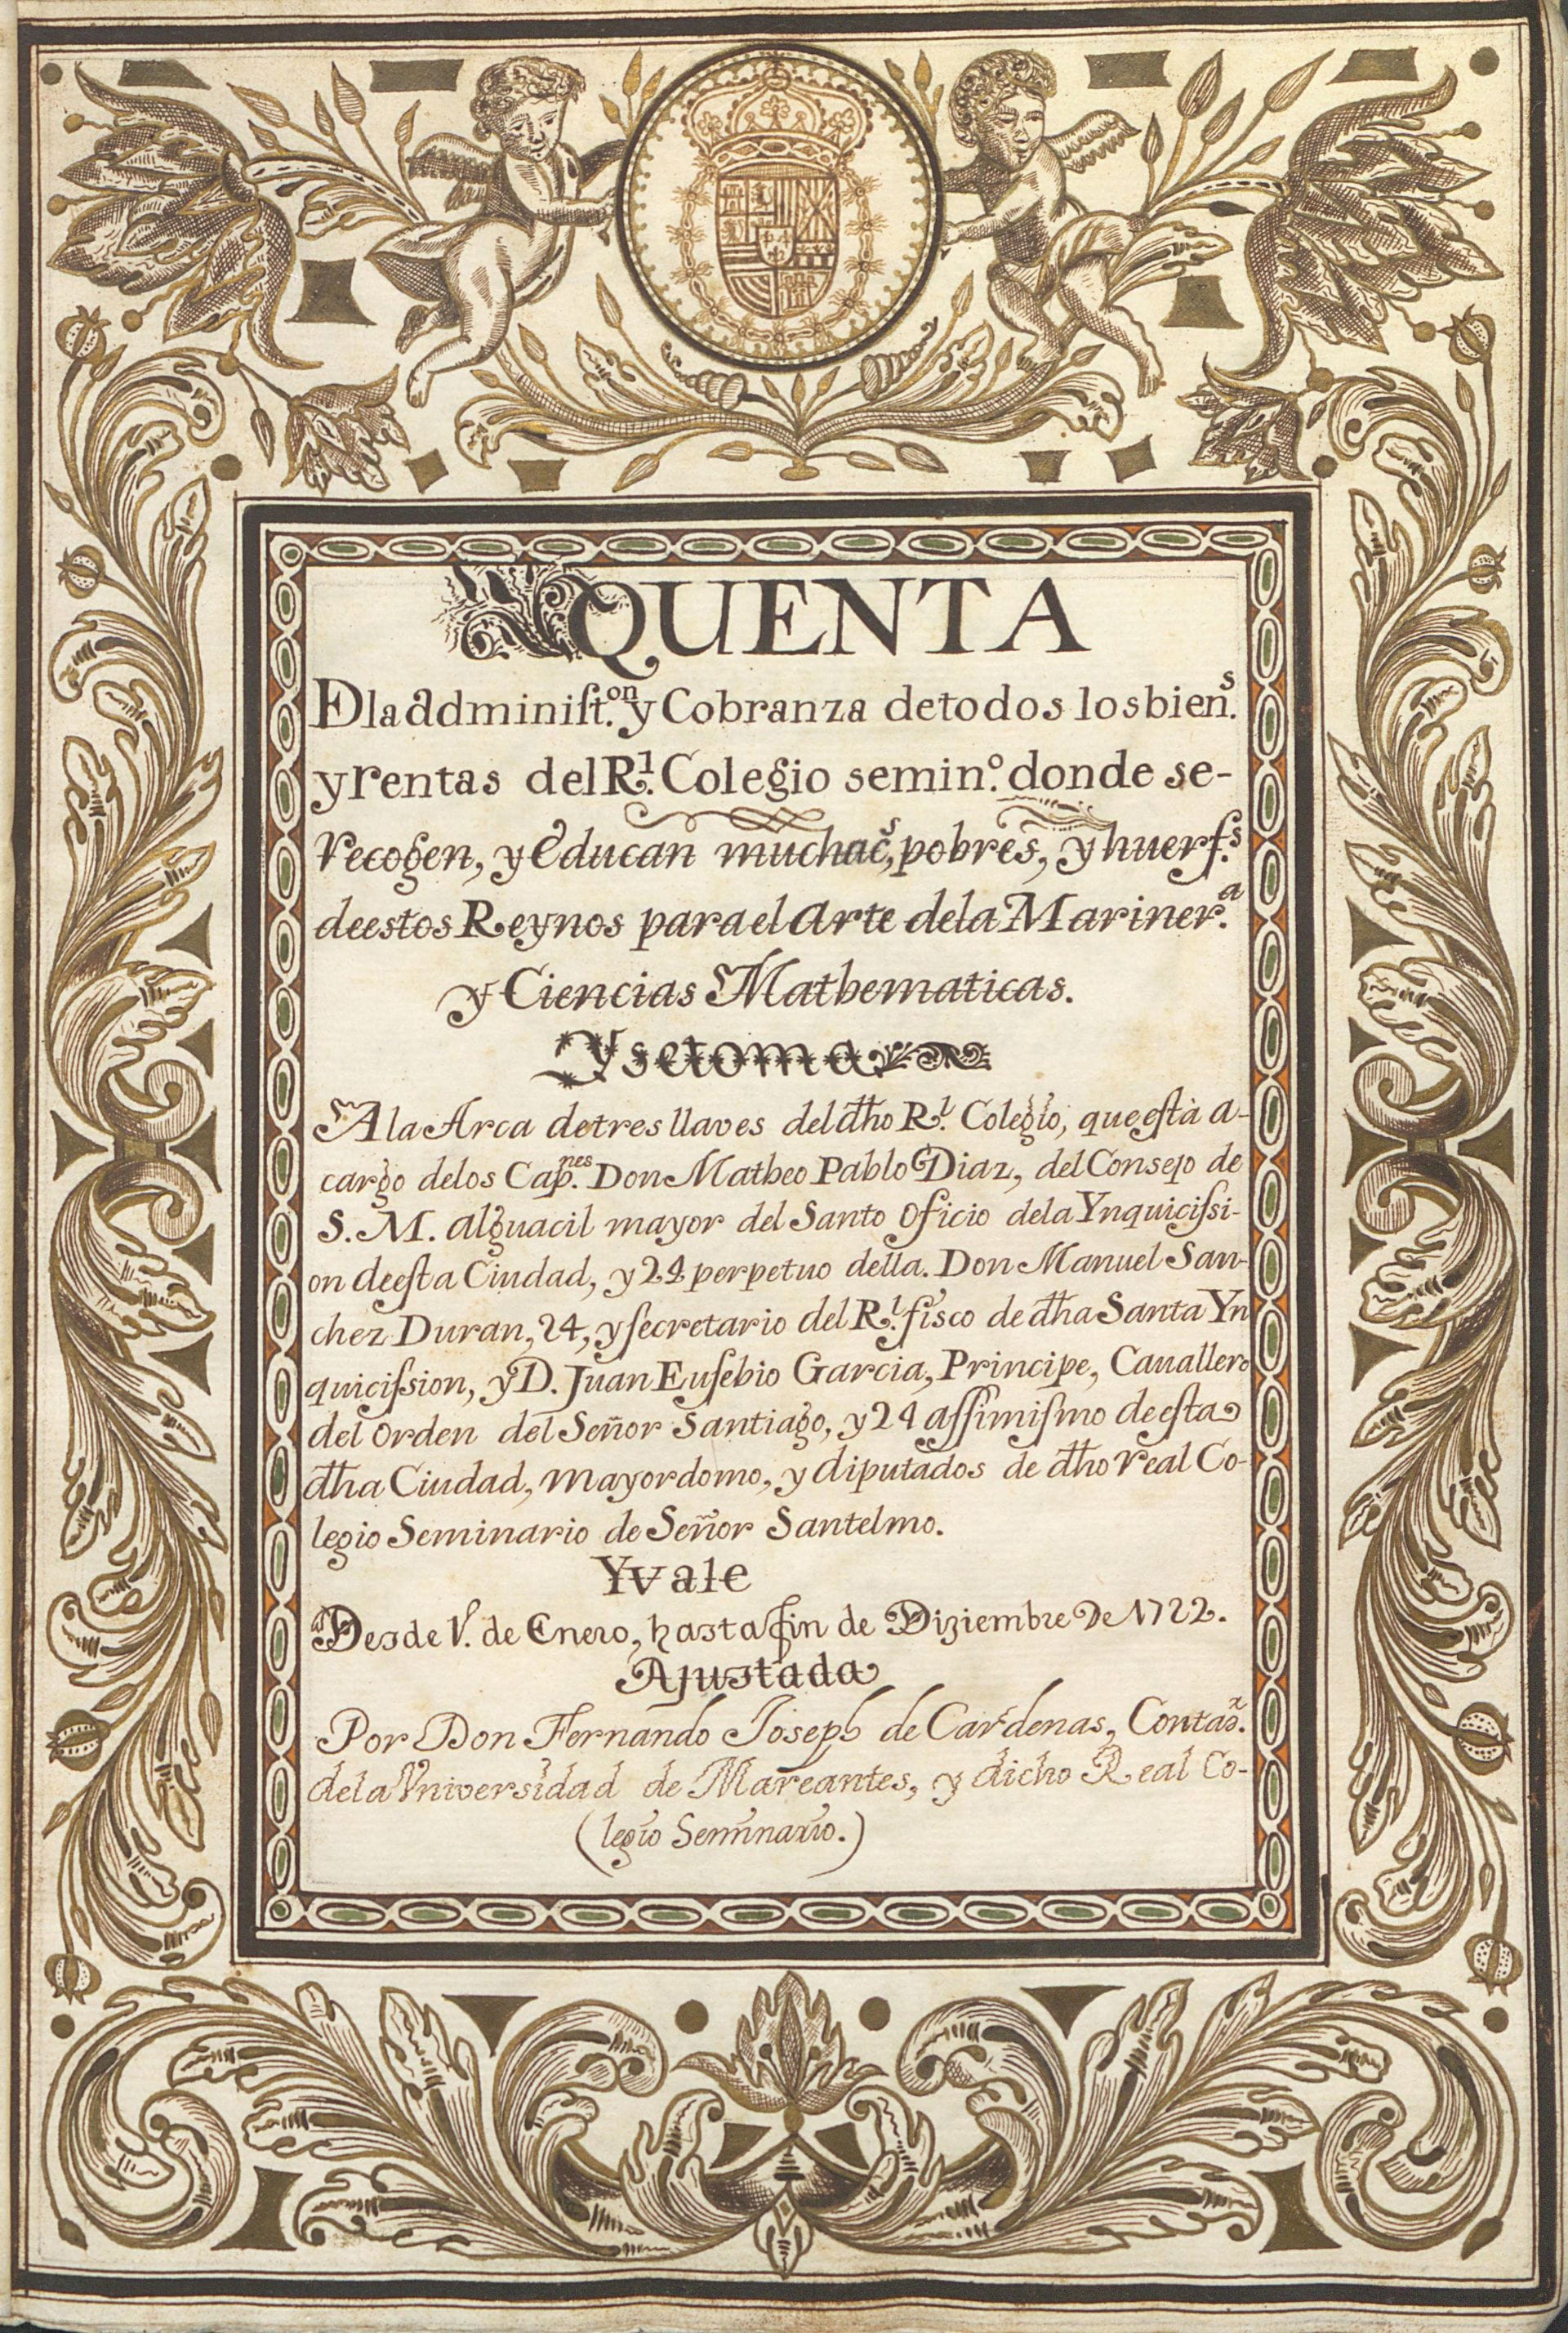 QUENTA
Dela administ.on y Cobranza de todos los bien.s
y rentas del R.l Colegio semin.o donde se-
recogen, y educan muchac.s, pobres, y huerf.s
de estos Reynos para el arte de la Mariner.a
y Ciencias Mathematicas.
Y se toma
A la Arca de tres llaves del dho R.l Colegio, que està a-
cargo de los Cap.nes Don Matheo Pablo Diaz, del Consejo de
S. M. alguacil mayor del Santo Oficio de la Ynquicissi-
on de esta Ciudad, y 24 perpetuo della. Don Manuel San-
chez Duran, 24, y secretario del R.l fisco de dha Santa Yn
quicission, y D. Juan Eusebio Garcia, Principe, Cauallero
del Orden del Señor Santiago, y 24 assimismo de esta
dha Ciudad, Mayordomo, y diputados de dho Real Co-
legio Seminario de Señor Santelmo.
Y vale
Desde 1.o de Enero, hasta fin de Diziembre De 1722.
Ajustada
Por Don Fernando Joseph de Cardenas, Contad.r
de la Vniversidad de Mareantes, y dicho Real Co-
(legio Seminario.)